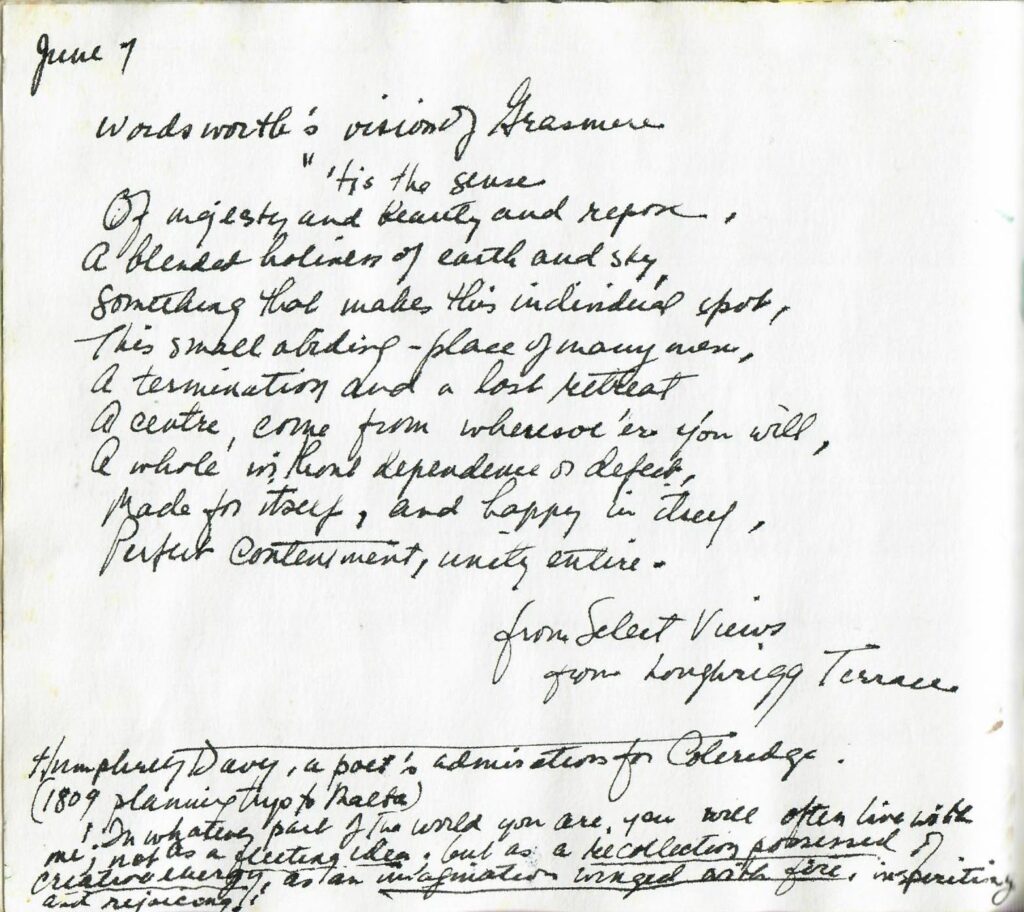 June 7
Wordsworth's vision of Grasmere
" 'tis the sense
Of majesty and beauty and repose,
A blended holiness of earth and sky,
Something that makes this individual spot,
This small abiding-place of many men,
A termination and a last retreat
A centre, come from wheresoe'er you will,
A whole without dependence or defect,
Made for itself, and happy in itself,
Perfect Contentment, unity entire.
from Select Views
from Loughrigg Terrace
Humphrey Davy, a poet's admiration for Coleridge.
(1809 planning trip to Malta)
! In whatever part of the world you are, you will often live with
me, not as a fleeting idea, but as a recollection possessed of
creative energy, as an imagination winged with fire, inspiriting
and rejoicing!